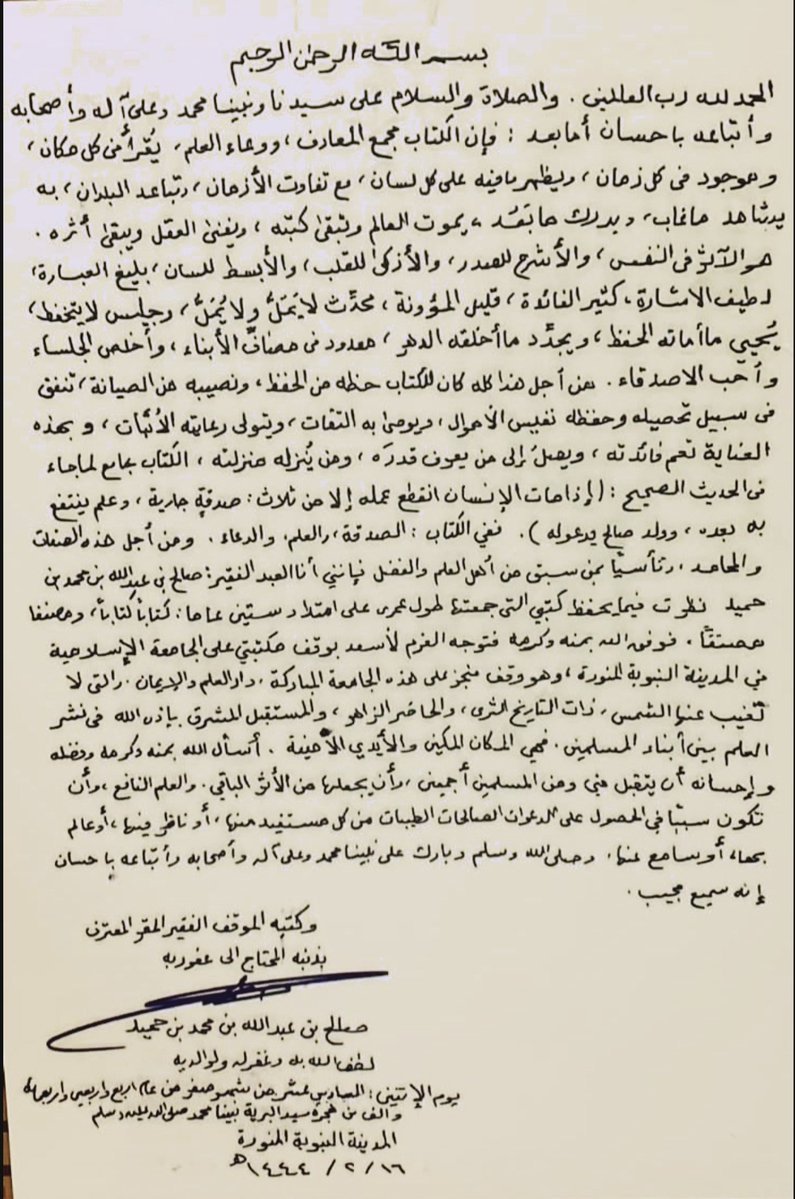 بسم الله الرحمن الرحيم
الحمد لله رب العالمين . والصلاة والسلام على سيدنا ونبينا محمد وعلى آله وأصحابه
وأتباعه بإحسان أما بعد : فإن الكتاب مجمع المعارف ، ووعاء العلم ، يُقرأ في كل مكان ،
وموجود في كل زمان ، ويظهر ما فيه على كل لسان ، مع تفاوت الأزمان ، وتباعد البلدان ، به
يشاهد ما غاب ، ويدرك ما بَعُد ، يموت العالم وتبقى كتبه ، ويفنى العقل ويبقى أثره .
هو الآثر في النفس ، والأشرح للصدر ، والأذكى للقلب ، والأبسط للسان ، بليغ العبارة ،
لطيف الاشارة ، كثير الفائدة ، قليل المؤونة ، محدِّث لا يَمَلُّ ولا يُمَلُّ ، وجليس لا يتحفظ ،
يُحيي ما أماته الحفظ ، ويجدَّد ما أخلقه الدهر ، معدود في مصافِّ الأبناء ، وأخلص الجلساء
وأحب الاصدقاء . من أجل هذا كله كان للكتاب حظه من الحفظ ، ونصيبه من الصيانة ، تنفق
في سبيل تحصيله وحفظه نفيس الأموال ، ويوصى به الثقات ، ويتولى رعايته الأثبات ، وبهذه
العناية تعم فائدته ، ويصل إلى من يعرف قدرَه ، ومن يُنزله منزلته ، الكتاب جامع لما جاء
في الحديث الصحيح : ( إذا مات الإنسان انقطع عمله إلا من ثلاث : صدقةٍ جارية ، وعلم ينتفع
به بعده ، وولد صالح يدعو له ) . ففي الكتاب : الصدقة ، والعلم ، والدعاء . ومن أجل هذه الصفات
والمحامد ، وتأسياً بمن سبق من أهل العلم والفضل فإنني أنا العبد الفقير : صالح بن عبد الله بن محمد بن
حميد نظرت فيما يحفظ كتبي التي جمعتها طول عمري على امتداد ستين عاما : كتاباً كتاباً ، ومصنفا
مصنفاً . فوفق الله بمنه وكرمه فتوجه العزم لأسعد بوقف مكتبتي على الجامعة الإسلامية
في المدينة النبوية المنورة ، وهو وقف منجز على هذه الجامعة المباركة ، دار العلم والإيمان . والتي لا
تغيب عنها الشمس ، ذات التاريخ الثري ، والحاضر الزاهر ، والمستقبل المشرق بإذن الله في نشر
العلم بين أبناء المسلمين . فهي المكان المكين والأيدي الأمينة . أسأل الله بمنه وكرمه وفضله
وإحسانه أن يتقبل مني ومن المسلمين أجمعين ، وأن يجعلها من الأثر الباقي . والعلم النافع ، وأن
تكون سبباً في الحصول على الدعوات الصالحات الطيبات من كل مستفيد منها ، أو ناظر فيها ، أو عالم
بها ، أو سامع عنها . وصلى الله وسلم وبارك على نبينا محمد وعلى آله وأصحابه وأتباعه بإحسان
إنه سميع مجيب .
وكتبه الموقف الفقير المقر المعترف
بذنبه المحتاج الى عفو ربه
صالح بن عبد الله بن محمد بن حميد
لطف الله به وغفر له ولوالديه
يوم الإثنين : السادس عشر من شهر صفر من عام أربع وأربعين وأربعمائة
وألف من هجرة سيد البرية نبينا محمد صلى الله عليه وسلم
المدينة النبوية المنورة
١٦ / ٢ / ١٤٤٤ هـ